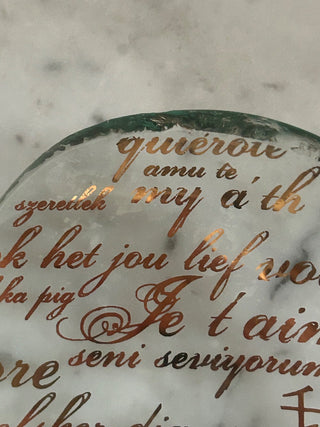 quiérou
amu te
szeretlek my a' th
k het jou lief vo
ka pig Je t'aim
ore seni seviyorum
lsker dig